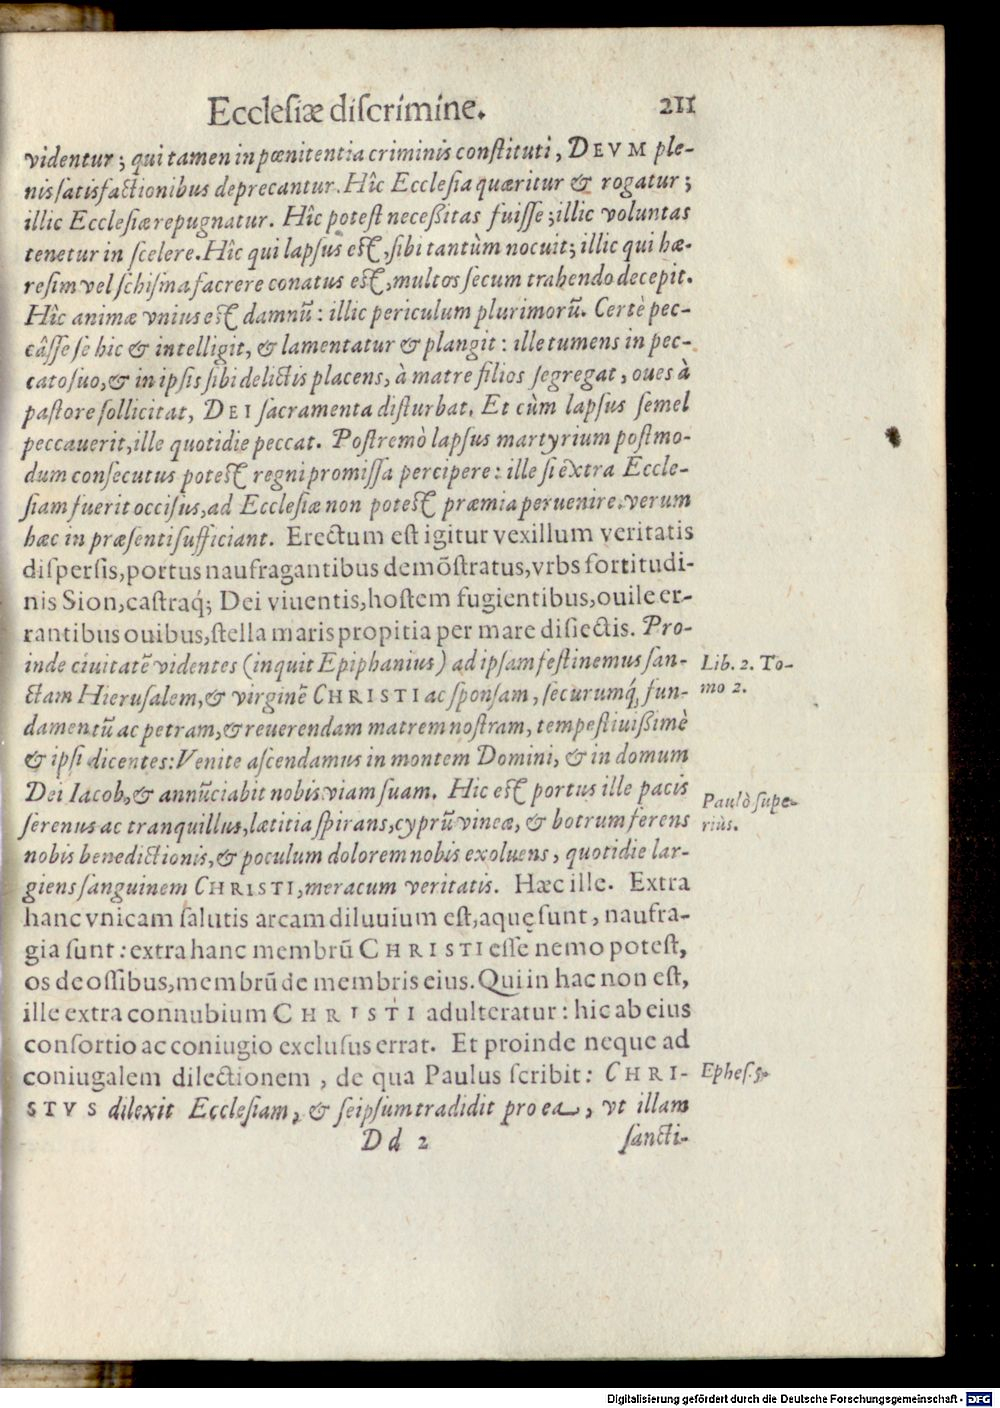 Ecclesiæ discrimine. 211
videntur; qui tamen in pœnitentia criminis constituti, DEVM ple-
nis satisfactionibus deprecantur. Hîc Ecclesia quæritur & rogatur;
illic Ecclesiæ repugnatur. Hîc potest necessitas fuisse; illic voluntas
tenetur in scelere. Hîc qui lapsus est, sibi tantùm nocuit; illic qui hæ-
resim vel schisma facere conatus est, multos secum trahendo decepit.
Hîc animæ vnius est damnũ: illic periculum plurimorũ. Certè pec-
câsse se hic & intelligit, & lamentatur & plangit: ille tumens in pec-
cato suo, & in ipsis sibi delictis placens, à matre filios segregat, oues à
pastore sollicitat, DEI sacramenta disturbat. Et cùm lapsus semel
peccauerit, ille quotidie peccat. Postremò lapsus martyrium postmo-
dum consecutus potest regni promissa percipere: ille si extra Eccle-
siam fuerit occisus, ad Ecclesiæ non potest præmia peruenire. verum
hæc in præsenti sufficiant. Erectum est igitur vexillum veritatis
dispersis, portus naufragantibus demõstratus, vrbs fortitudi-
nis Sion, castraq́; Dei viuentis, hostem fugientibus, ouile er-
rantibus ouibus, stella maris propitia per mare disiectis. Pro-
inde ciuitatẽ videntes (inquit Epiphanius) ad ipsam festinemus san-
ctam Hierusalem, & virginẽ CHRISTI ac sponsam, securumq́, fun-
damentũ ac petram, & reuerendam matrem nostram, tempestiuissimè
& ipsi dicentes: Venite ascendamus in montem Domini, & in domum
Dei Iacob, & annũciabit nobis viam suam. Hic est portus ille pacis
serenus ac tranquillus, lætitia spirans, cyprũ vineæ, & botrum ferens
nobis benedictionis, & poculum dolorem nobis exoluens, quotidie lar-
giens sanguinem CHRISTI, meracum veritatis. Hæc ille. Extra
hanc vnicam salutis arcam diluuium est, aquę sunt, naufra-
gia sunt: extra hanc membrũ CHRISTI esse nemo potest,
os de ossibus, membrũ de membris eius. Qui in hac non est,
ille extra connubium CHRISTI adulteratur: hic ab eius
consortio ac coniugio exclusus errat. Et proinde neque ad
coniugalem dilectionem, de qua Paulus scribit: CHRI-
STVS dilexit Ecclesiam, & seipsum tradidit pro ea, vt illam
Dd 2 sancti-
Lib. 2. To-
mo 2.
Paulò supe-
riùs.
Ephes. 5.
Digitalisierung gefördert durch die Deutsche Forschungsgemeinschaft - DFG